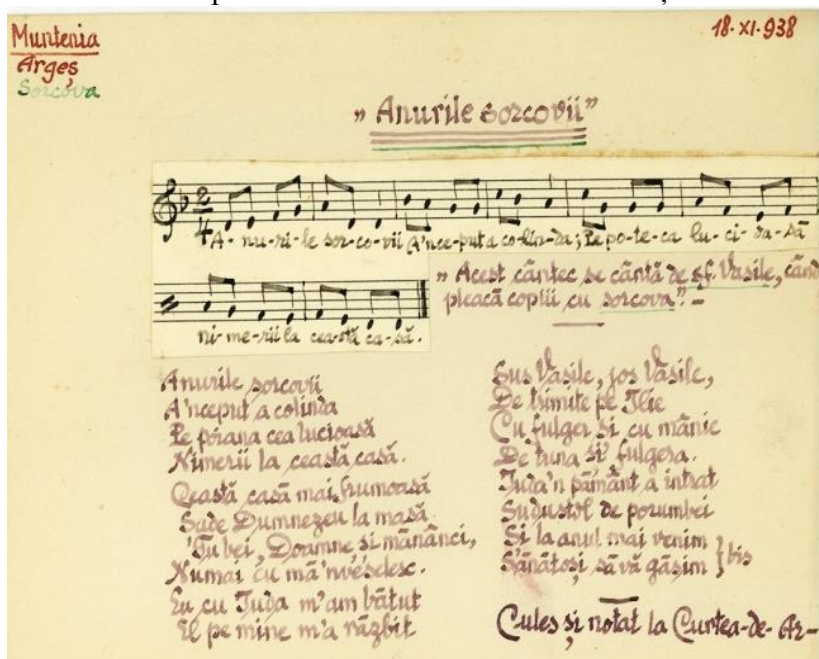 Muntenia
Argeș
Sorcova
18·XI·938
„Anurile sorcovii”
A-nu-ri-le sor-co-vii A'nce-put a co-lin-da; Pe po-te-ca lu-ci-oa-să
ni-me-rii la cea-stă ca-să.
„Acest cântec se cântă de sf. Vasile, când
pleacă copiii cu sorcova.” –
Anurile sorcovii
A'nceput a colinda
Pe poiana cea lucioasă
Nimerii la ceastă casă.
Ceastă casă mai frumoasă
Sade Dumnezeu la masă
Tu bei, Doamne si mănânci,
Numai cu mă'nveselesc.
Eu cu Iuda m'am bătut
El pe mine m'a răzbit
Sus Vasile, jos Vasile,
De trimite pe Ilie
Cu fulger si cu mânie
De tuna si fulgera.
Iuda'n pământ a intrat
de porumbei
Si la anul mai venim } bis
Sănătoși să vă găsim
Cules și notat la Curtea-de-Ar-